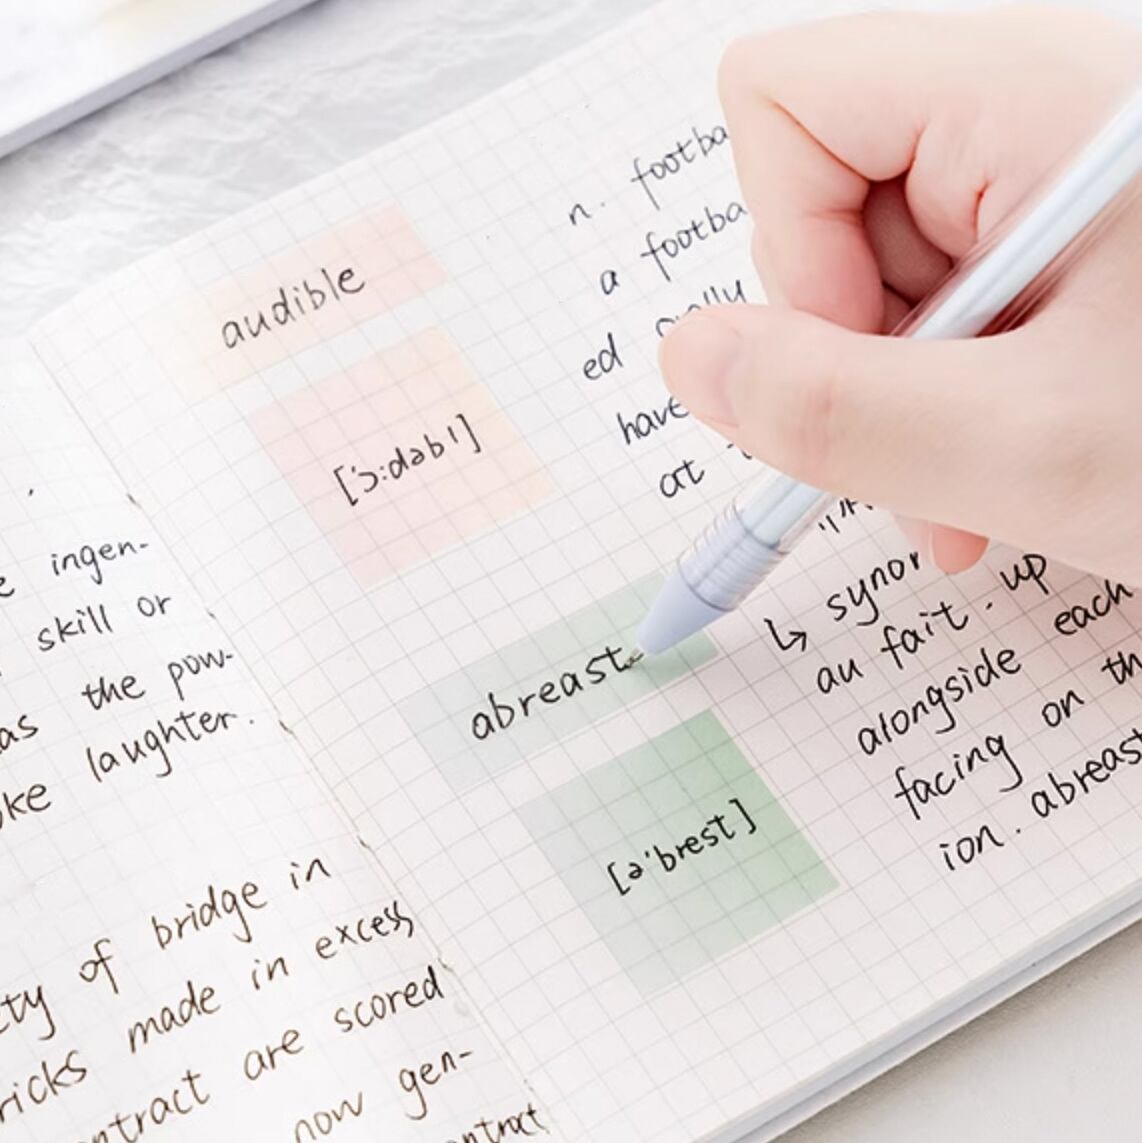 ingen-
skill or
as the pow-
oke laughter.
of bridge in
ricks made in excess
ontract are scored
now gen-
ontract
audible
['ɔ:dəbl]
abreast
[ə'brest]
n. footba
a footba
ed
have
at
↳ synon
au fait. up
alongside each
facing on th
ion. abreast